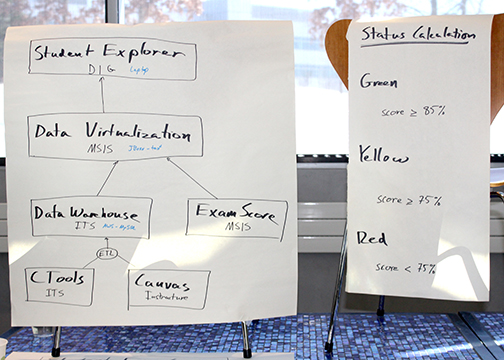 Student Explorer
DIG laptop
Data Virtualization
MSIS
Data Warehouse
ITS
Exam Score
MSIS
ETL
CTools
ITS
Canvas
Instructure
Status Calculation
Green
score ≥ 85%
Yellow
score ≥ 75%
Red
score < 75%